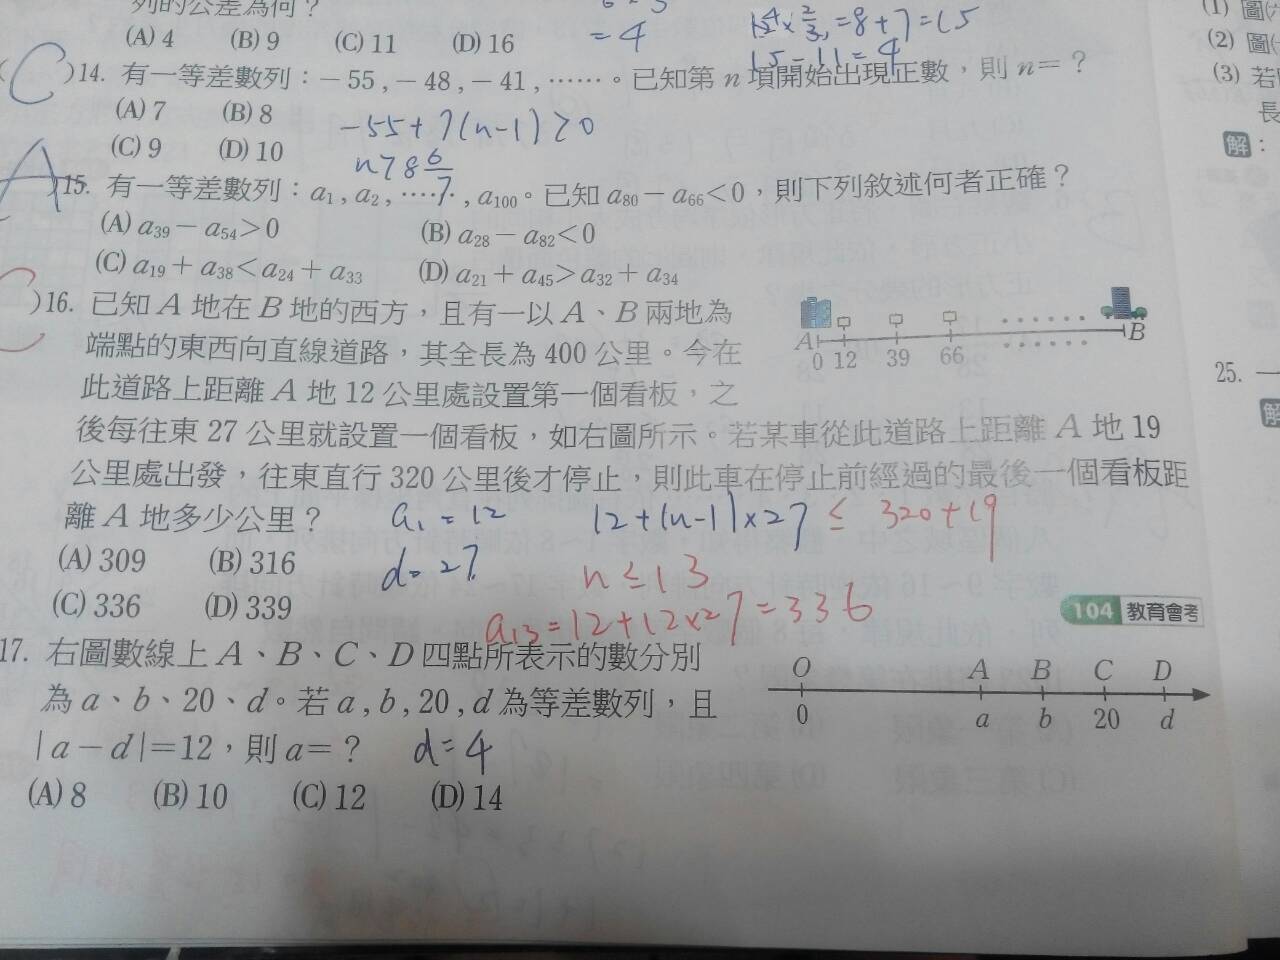 列的公差為何？
(A) 4 (B) 9 (C) 11 (D) 16
= 4
=8+7=15
15-11=4
(1) 圖
(2) 圖
(3) 若
長
解：
C )14. 有一等差數列：－55 , －48 , －41 , ……。已知第 n 項開始出現正數，則 n＝？
(A) 7 (B) 8
(C) 9 (D) 10
-55+7(n-1)>0
n>8 6/7
A )15. 有一等差數列：a₁ , a₂ , …… , a₁₀₀。已知 a₈₀－a₆₆<0，則下列敘述何者正確？
(A) a₃₉－a₅₄>0 (B) a₂₈－a₈₂<0
(C) a₁₉＋a₃₈<a₂₄＋a₃₃ (D) a₂₁＋a₄₅>a₃₂＋a₃₄
C )16. 已知 A 地在 B 地的西方，且有一以 A、B 兩地為
端點的東西向直線道路，其全長為 400 公里。今在
此道路上距離 A 地 12 公里處設置第一個看板，之
後每往東 27 公里就設置一個看板，如右圖所示。若某車從此道路上距離 A 地 19
公里處出發，往東直行 320 公里後才停止，則此車在停止前經過的最後一個看板距
離 A 地多少公里？
A B
0 12 39 66
…… 
……
(A) 309 (B) 316
(C) 336 (D) 339
a₁=12
d=27
12+(n-1)×27 ≤ 320+19
n≤13
a₁₃=12+12×27=336
104 教育會考
25. 一
解
17. 右圖數線上 A、B、C、D 四點所表示的數分別
為 a、b、20、d。若 a , b , 20 , d 為等差數列，且
|a－d|＝12，則 a＝？
d=4
(A) 8 (B) 10 (C) 12 (D) 14
O A B C D
0 a b 20 d